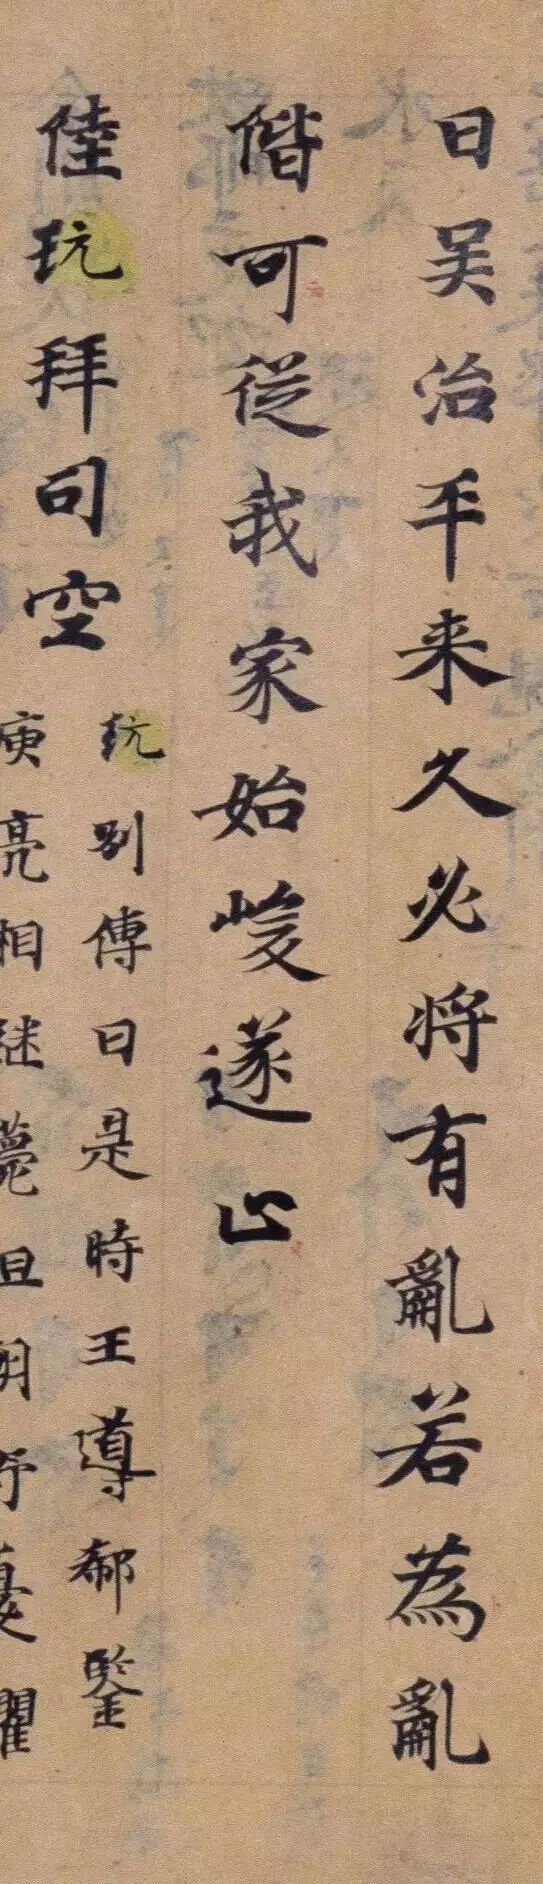 曰吴治平来久必将有亂若為亂
階可從我家始峻遂止
陸玩拜司空
玩別傳曰是時王導郗鑒
庾亮相継薨
憂懼